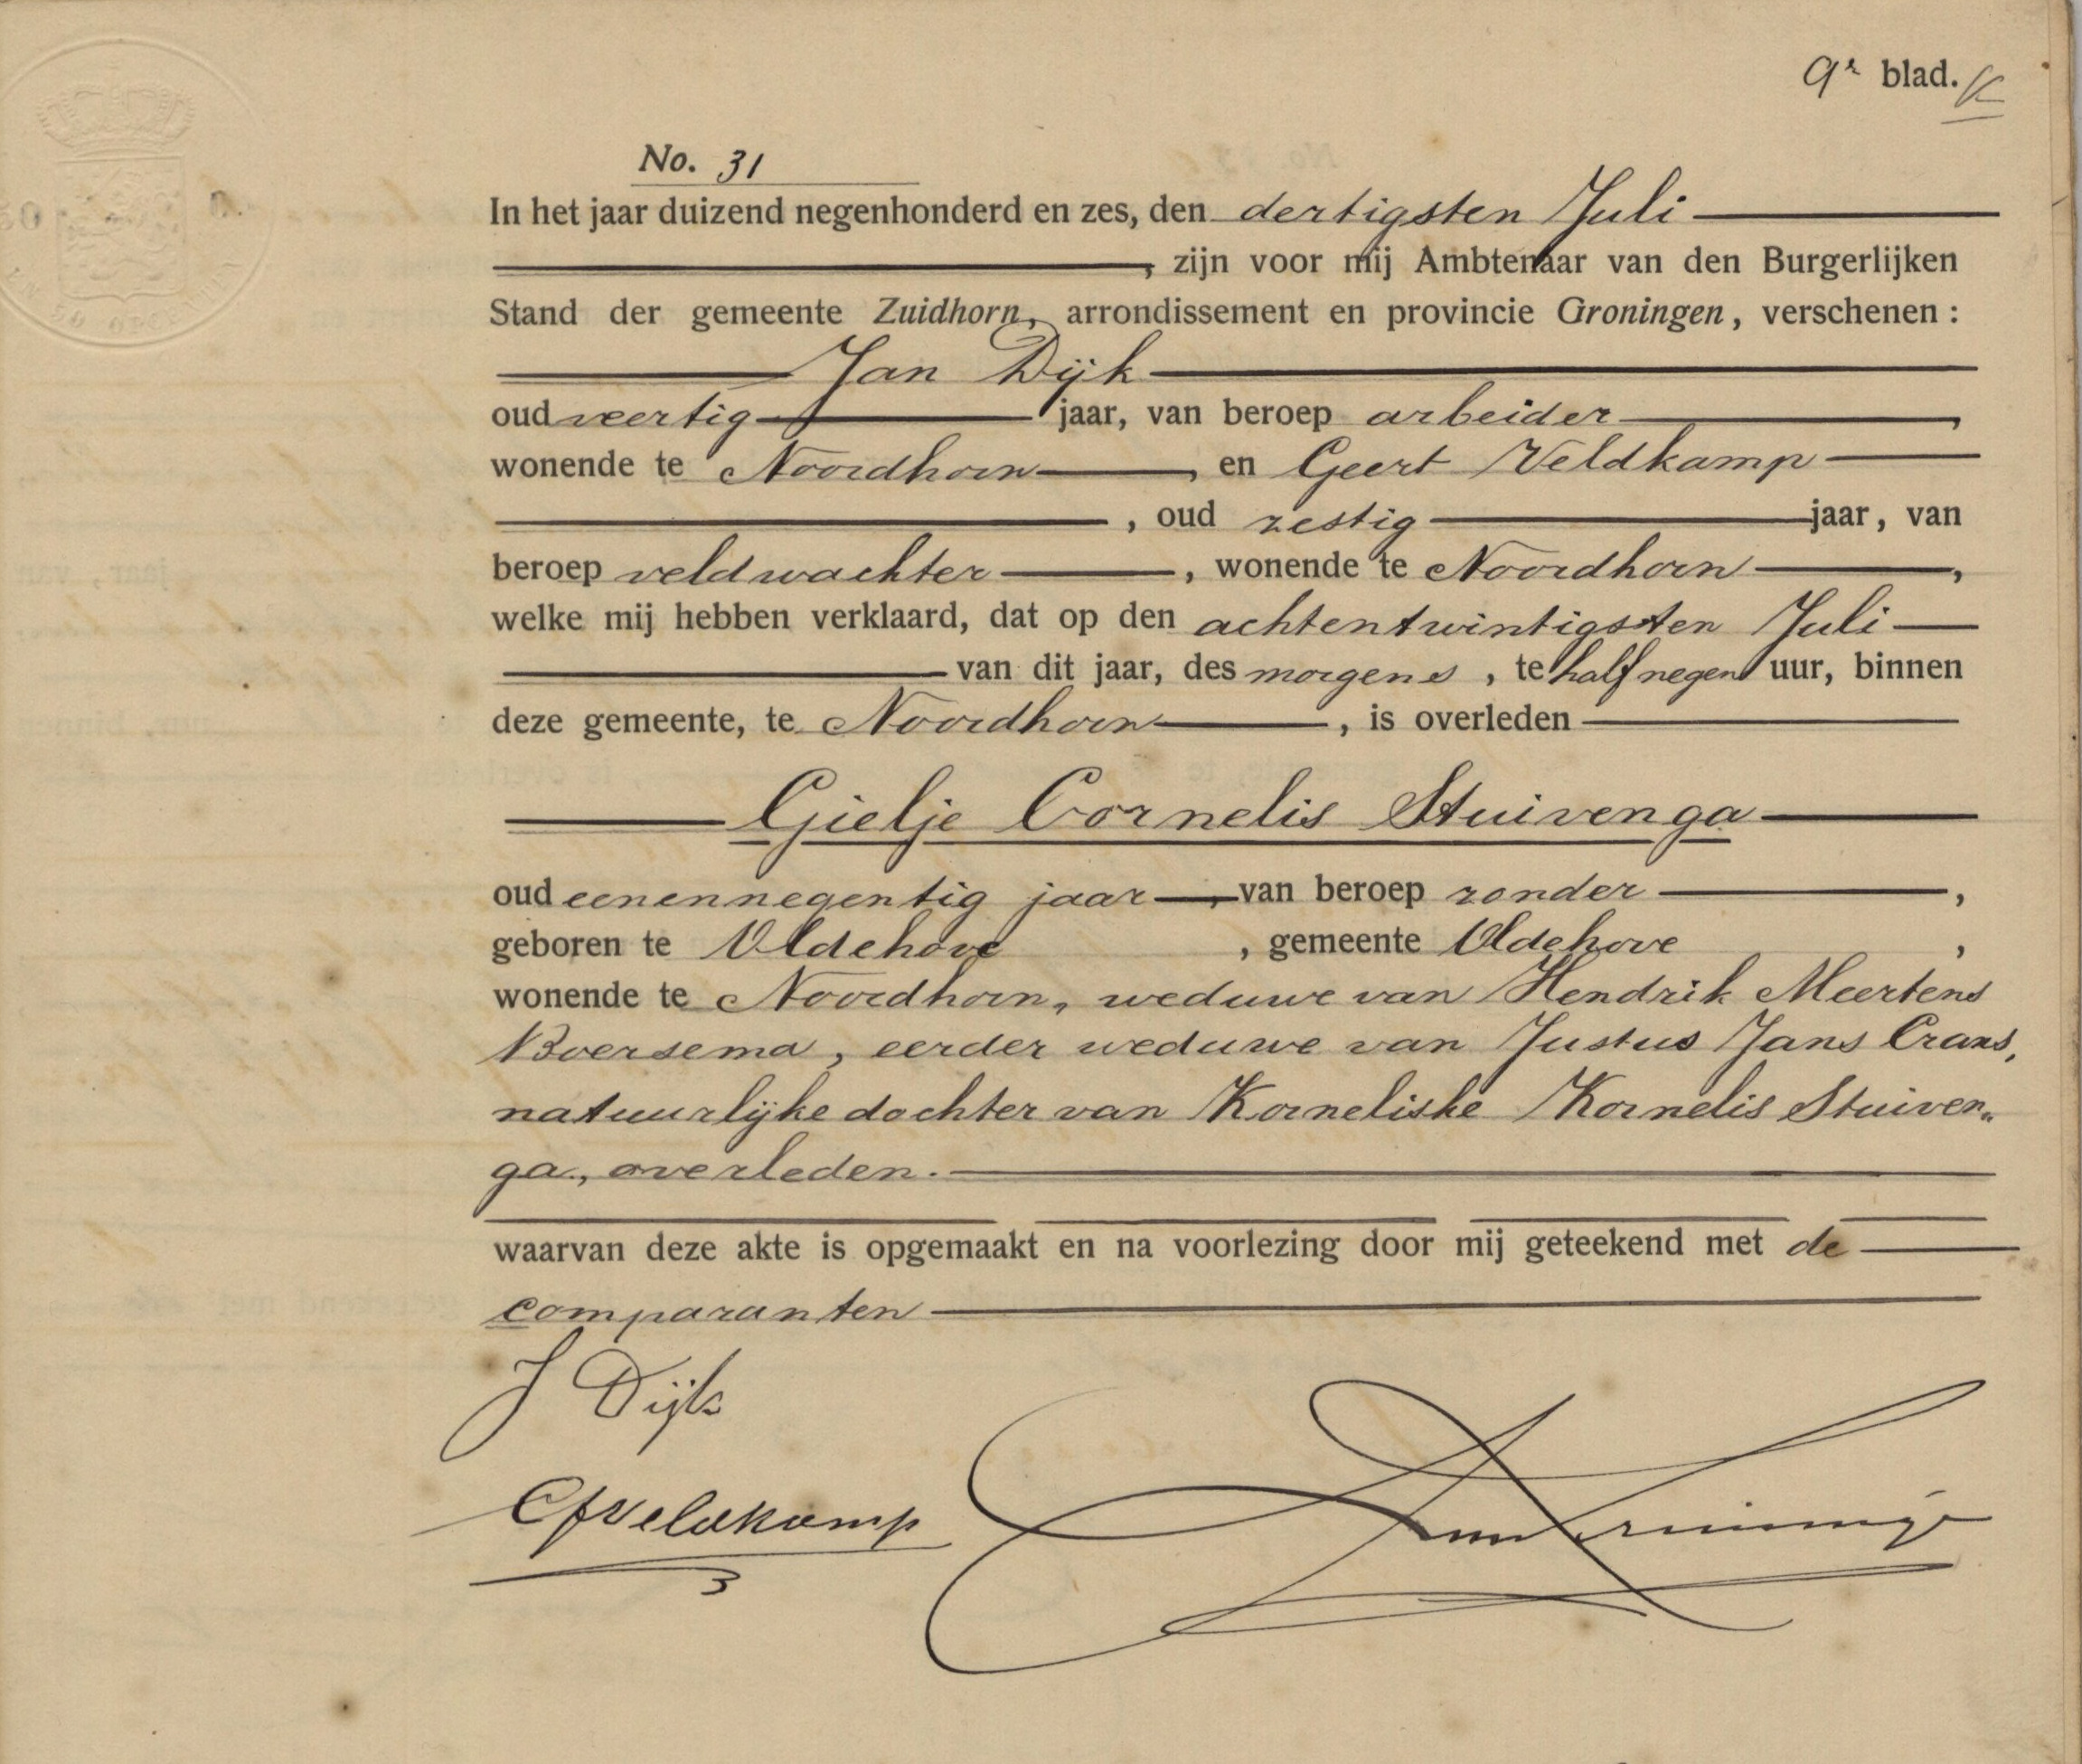 9e blad.
No. 31
In het jaar duizend negenhonderd en zes, den dertigsten Juli
, zijn voor mij Ambtenaar van den Burgerlijken
Stand der gemeente Zuidhorn, arrondissement en provincie Groningen, verschenen :
Jan Dijk
oud veertig jaar, van beroep arbeider,
wonende te Noordhorn, en Geert Veldkamp
, oud zestig jaar, van
beroep veldwachter, wonende te Noordhorn,
welke mij hebben verklaard, dat op den achtentwintigsten Juli
van dit jaar, des morgens, te half negen uur, binnen
deze gemeente, te Noordhorn, is overleden
Gielje Cornelis Stuivenga
oud eenennegentig jaar, van beroep zonder,
geboren te Oldehove, gemeente Oldehove,
wonende te Noordhorn, weduwe van Hendrik Meertens
Boersema, eerder weduwe van Justus Jans Crans,
natuurlijke dochter van Korneliske Kornelis Stuiven„
ga, overleden.
waarvan deze akte is opgemaakt en na voorlezing door mij geteekend met de
comparanten
J Dijk
G Veldkamp